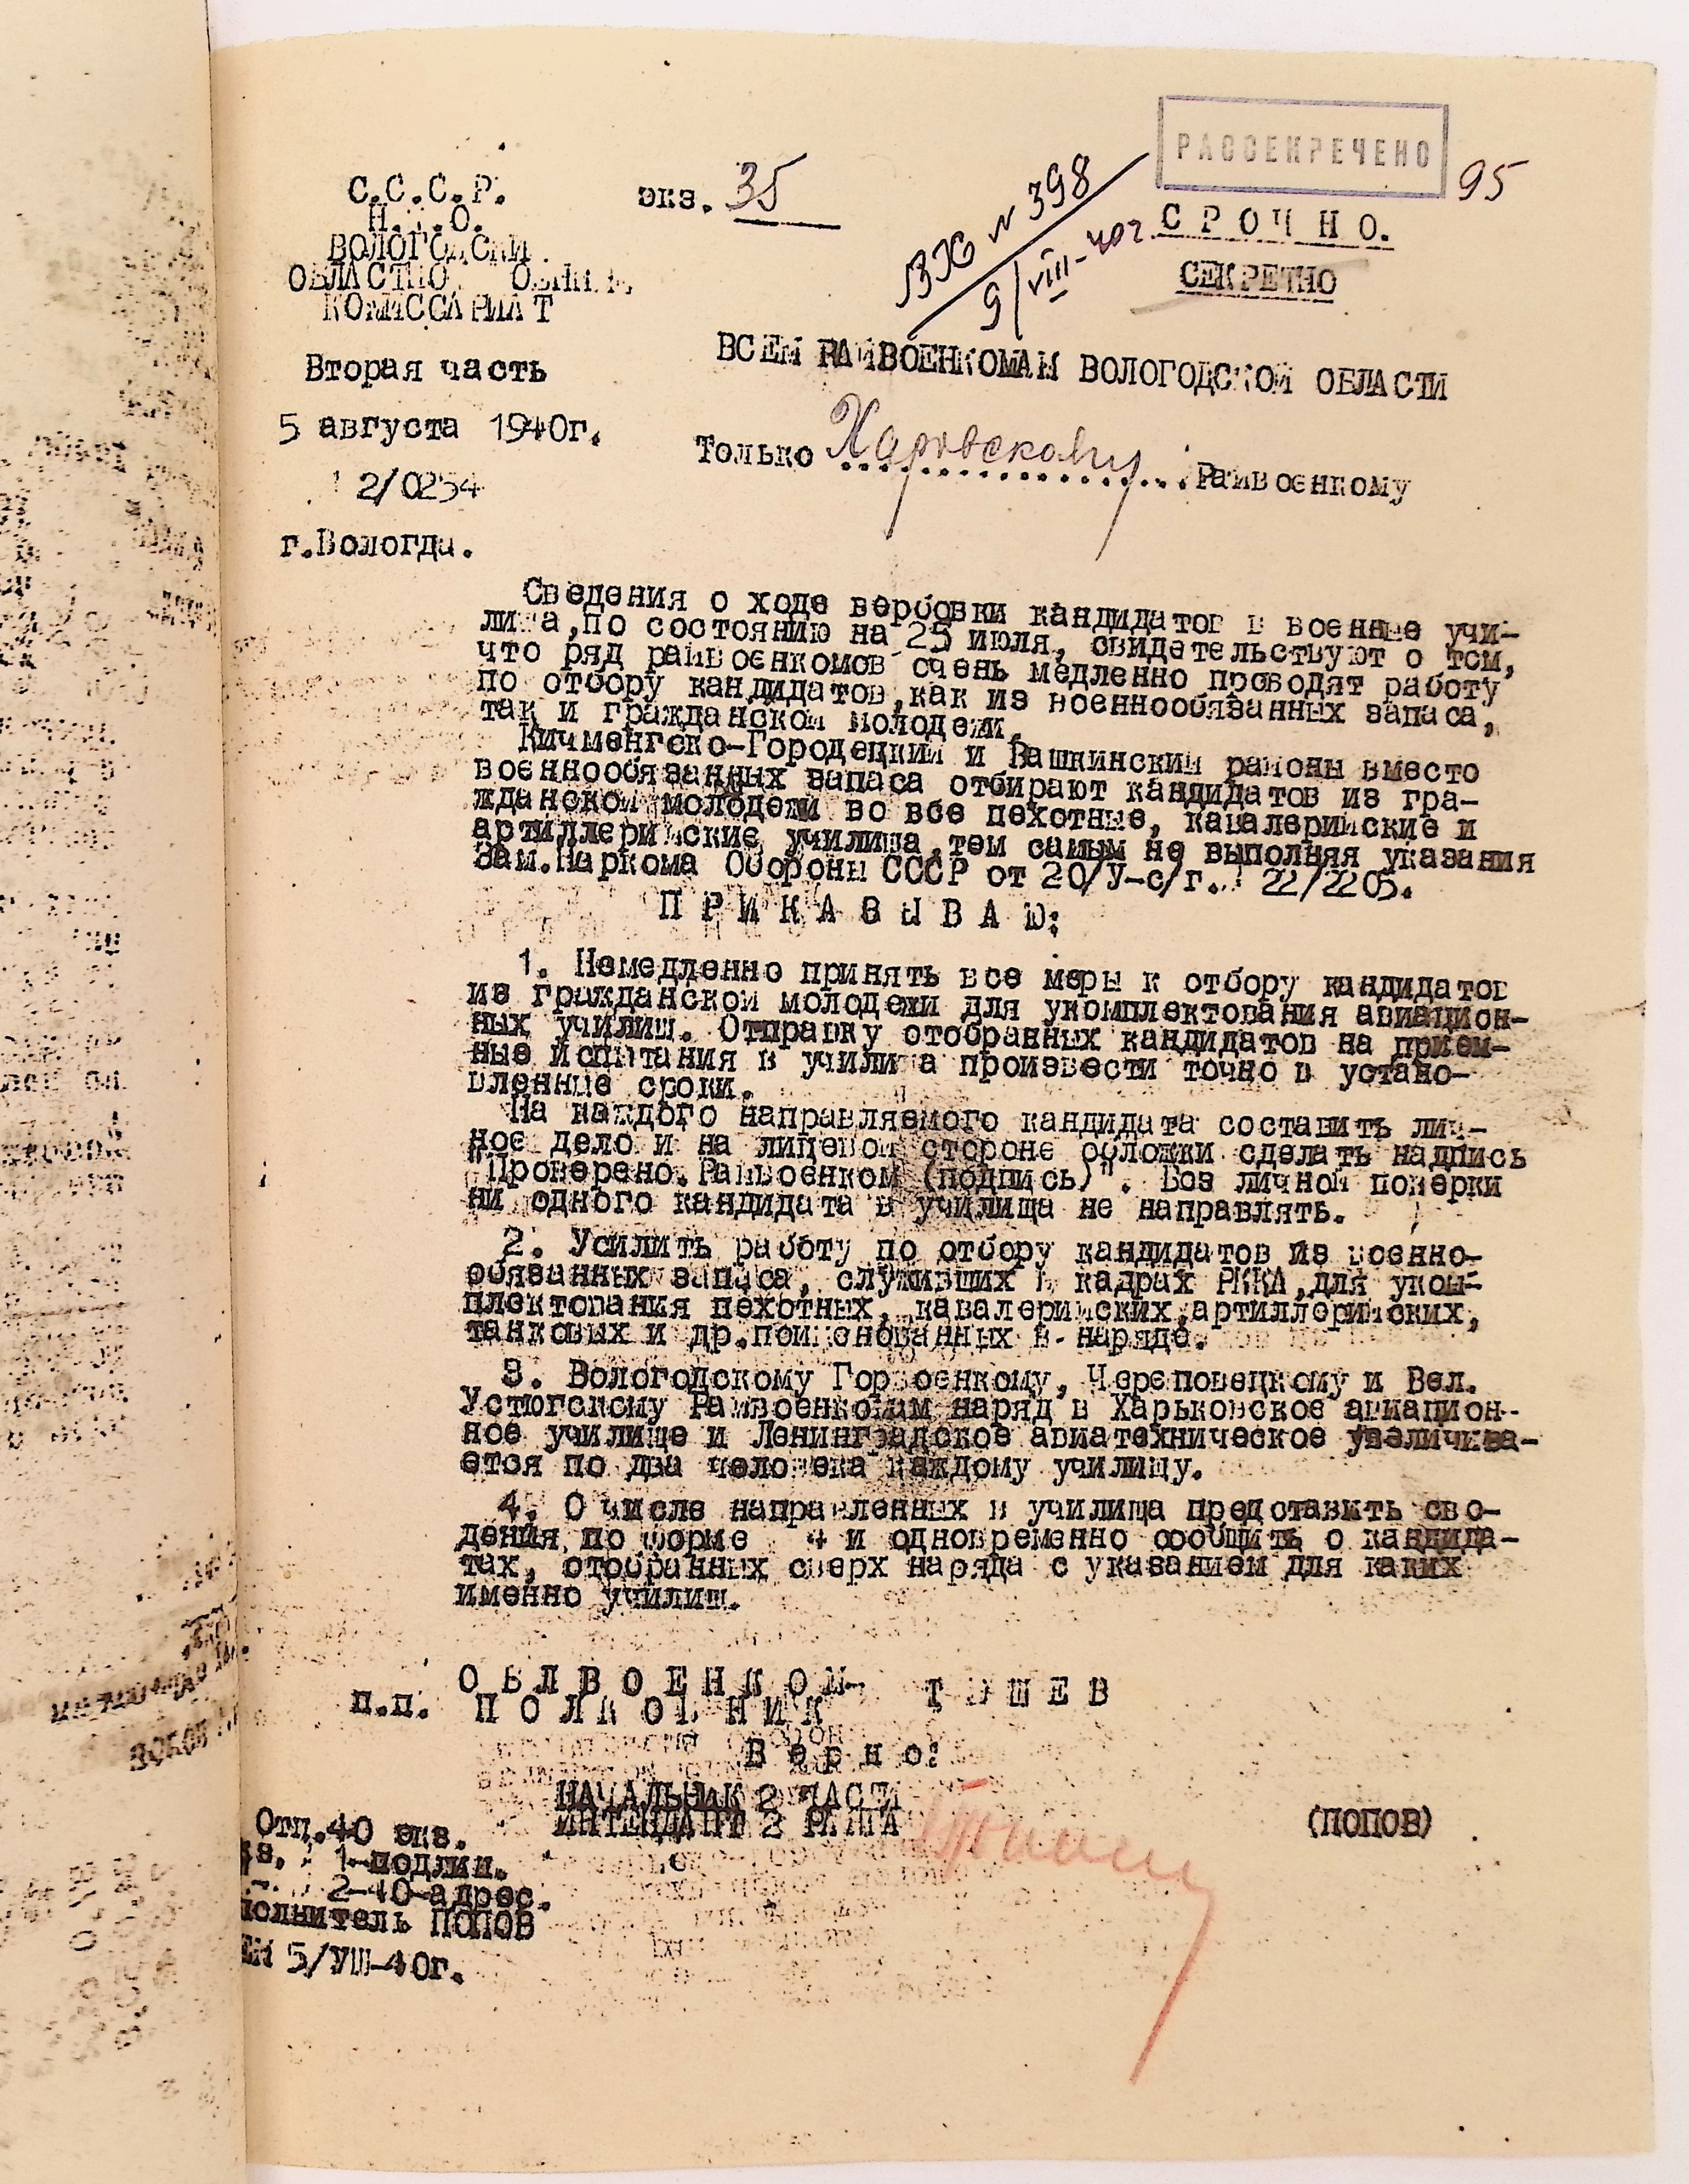 РАССЕКРЕЧЕНО
95
С.С.С.Р.
Н. .О.
ЭКЗ. 35
ВХ № 398
9/VIII-40г
С Р О Ч Н О.
СЕКРЕТНО
ВОЛОГОДСКИЙ
ОБЛАСТНОЙ ВОЕННЫЙ
КОМИССАРИАТ
Вторая часть
5 августа 1940г.
2/0254
г.Вологда.
ВСЕМ РАЙВОЕНКОМАМ ВОЛОГОДСКОЙ ОБЛАСТИ
Только Харовскому Райвоенкому
Сведения о ходе вербовки кандидатов в военные учи-
лища,по состоянию на 25 июля, свидетельствуют о том,
что ряд райвоенкомов очень медленно проводят работу
по отбору кандидатов,как из военнообязанных запаса,
так и гражданской молодежи.
Кичменгско-Городецкий и Вашкинский районы вместо
военнообязанных запаса отбирают кандидатов из гра-
жданской молодежи во все пехотные, кавалерийские и
артиллерийские училища,тем самым не выполняя указания
Зам.Наркома Обороны СССР от 20/У-с/г. 22/2205.
П Р И К А З Ы В А Ю:
1. Немедленно принять все меры к отбору кандидатов
из гражданской молодежи для укомплектования авиацион-
ных училищ. Отправку отобранных кандидатов на прием-
ные испытания в училища произвести точно в устано-
вленные сроки.
На каждого направляемого кандидата составить лич-
ное дело и на лицевой стороне обложки сделать надпись
"Проверено.Райвоенком (подпись)". Без личной поверки
ни одного кандидата в училища не направлять.
2. Усилить работу по отбору кандидатов из военно-
обязанных запаса, служивших в кадрах РККА,для уком-
плектования пехотных, кавалерийских,артиллерийских,
танковых и др.поименованных в наряде.
3. Вологодскому Горвоенкому, Череповецкому и Вел.
Устюгскому Райвоенкомам наряд в Харьковское авиацион-
ное училище и Ленинградское авиатехническое увеличива-
ется по два человека каждому училищу.
4. О числе направленных в училища представить све-
дения по форме 4 и одновременно сообщить о кандида-
тах, отобранных сверх наряда с указанием для каких
именно училищ.
О Б Л В О Е Н К О М-
п.п. П О Л К О В Н И К Т Ю Ш Е В
В е р н о:
НАЧАЛЬНИК 2 ЧАСТИ
ИНТЕНДАНТ 2 РАНГА (ПОПОВ)
Отп.40 экз.
1-подлин.
2-40-адрес.
полнитель ПОПОВ
5/УШ-40г.